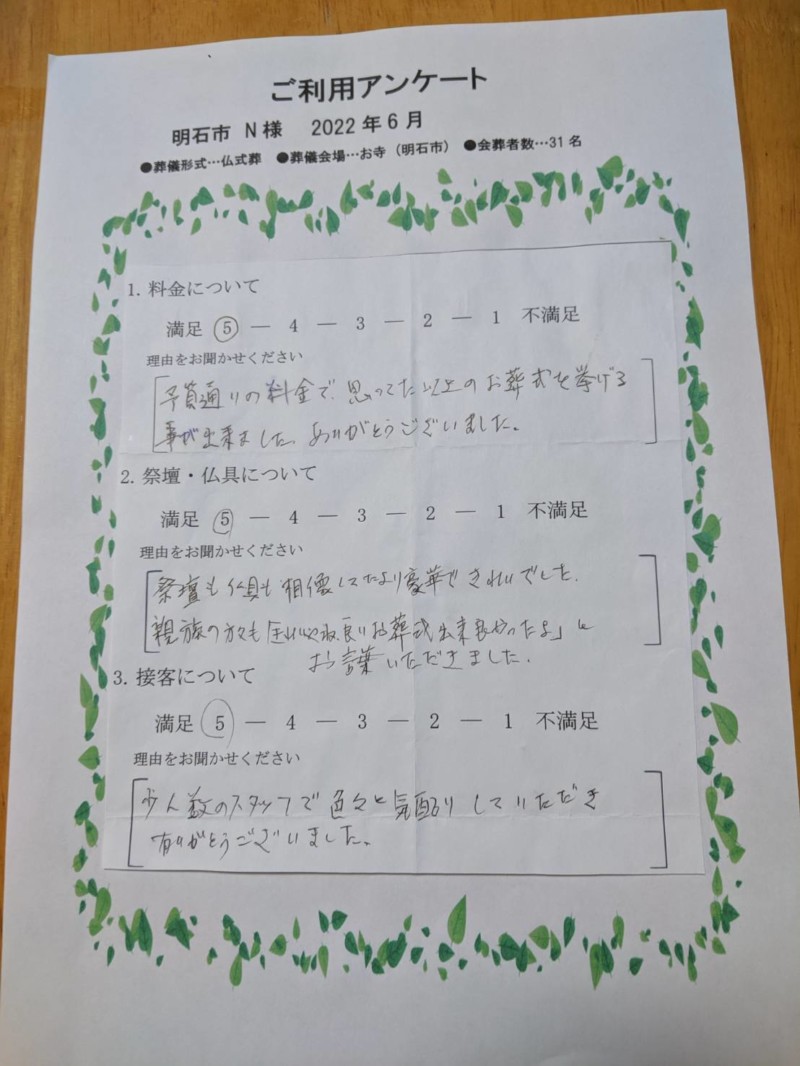 ご利用アンケート
明石市 N様 2022年6月
●葬儀形式…仏式葬 ●葬儀会場…お寺（明石市） ●会葬者数…31名
1. 料金について
満足 5 ― 4 ― 3 ― 2 ― 1 不満足
理由をお聞かせください
予算通りの料金で、思ってた以上のお葬式を挙げる
事が出来ました。ありがとうございました。
2. 祭壇・仏具について
満足 5 ― 4 ― 3 ― 2 ― 1 不満足
理由をお聞かせください
祭壇も仏具も想像してたより豪華できれいでした。
親族の方々も 良いお葬式出来良かったよ」と
お言葉いただきました。
3. 接客について
満足 5 ― 4 ― 3 ― 2 ― 1 不満足
理由をお聞かせください
少人数のスタッフで色々と気配りしていただき
有りがとうございました。